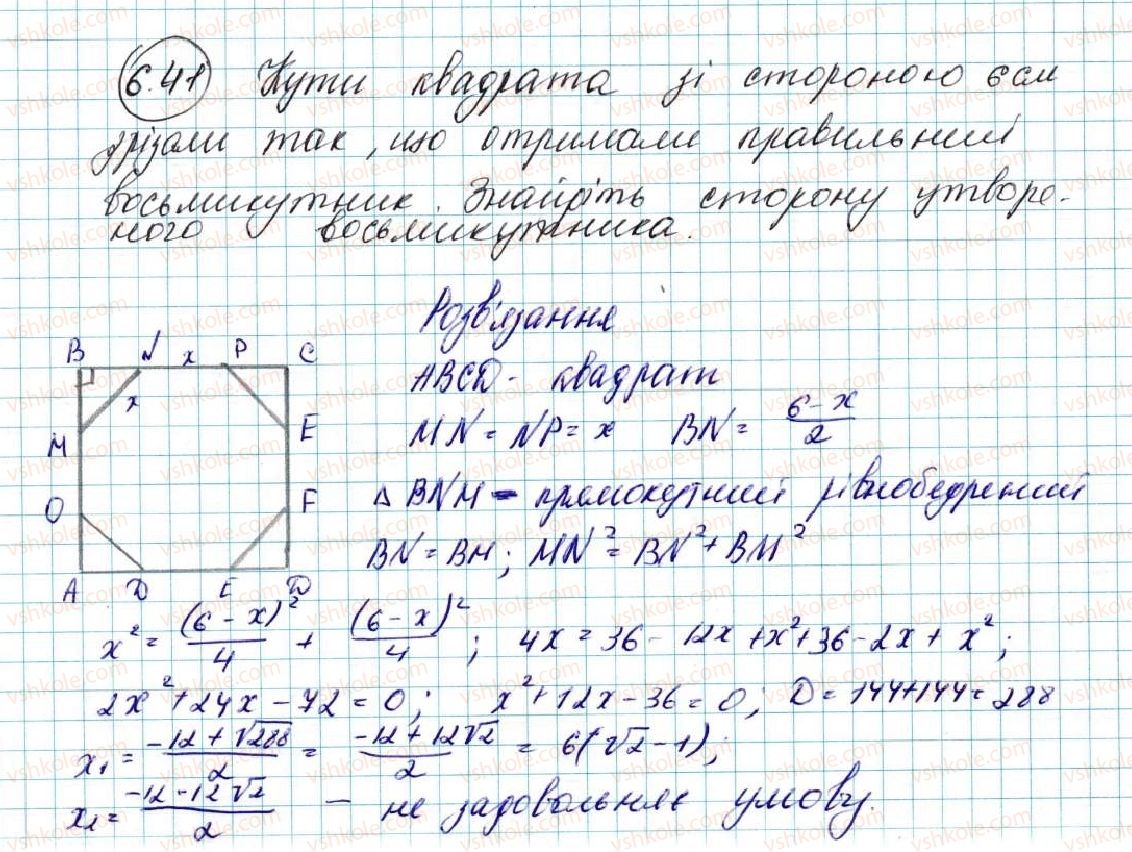 6.41 Кути квадрата зі стороною 6 см
зрізали так, що отримали правильний
восьмикутник. Знайдіть сторону утворе-
ного восьмикутника.
Розв'язання
B N x P C
x
M E
O F
A D E D
ABCD - квадрат
MN = NP = x BN = (6-x)/2
Δ BNM - прямокутний рівнобедрений
BN = BM; MN² = BN² + BM²
x² = (6-x)²/4 + (6-x)²/4; 4x = 36 - 12x + x² + 36 - 2x + x²;
2x² + 24x - 72 = 0; x² + 12x - 36 = 0; D = 144+144 = 288
x₁ = (-12+√288)/2 = (-12+12√2)/2 = 6(√2-1);
x₂ = (-12-12√2)/2 — не задовольняє умову.